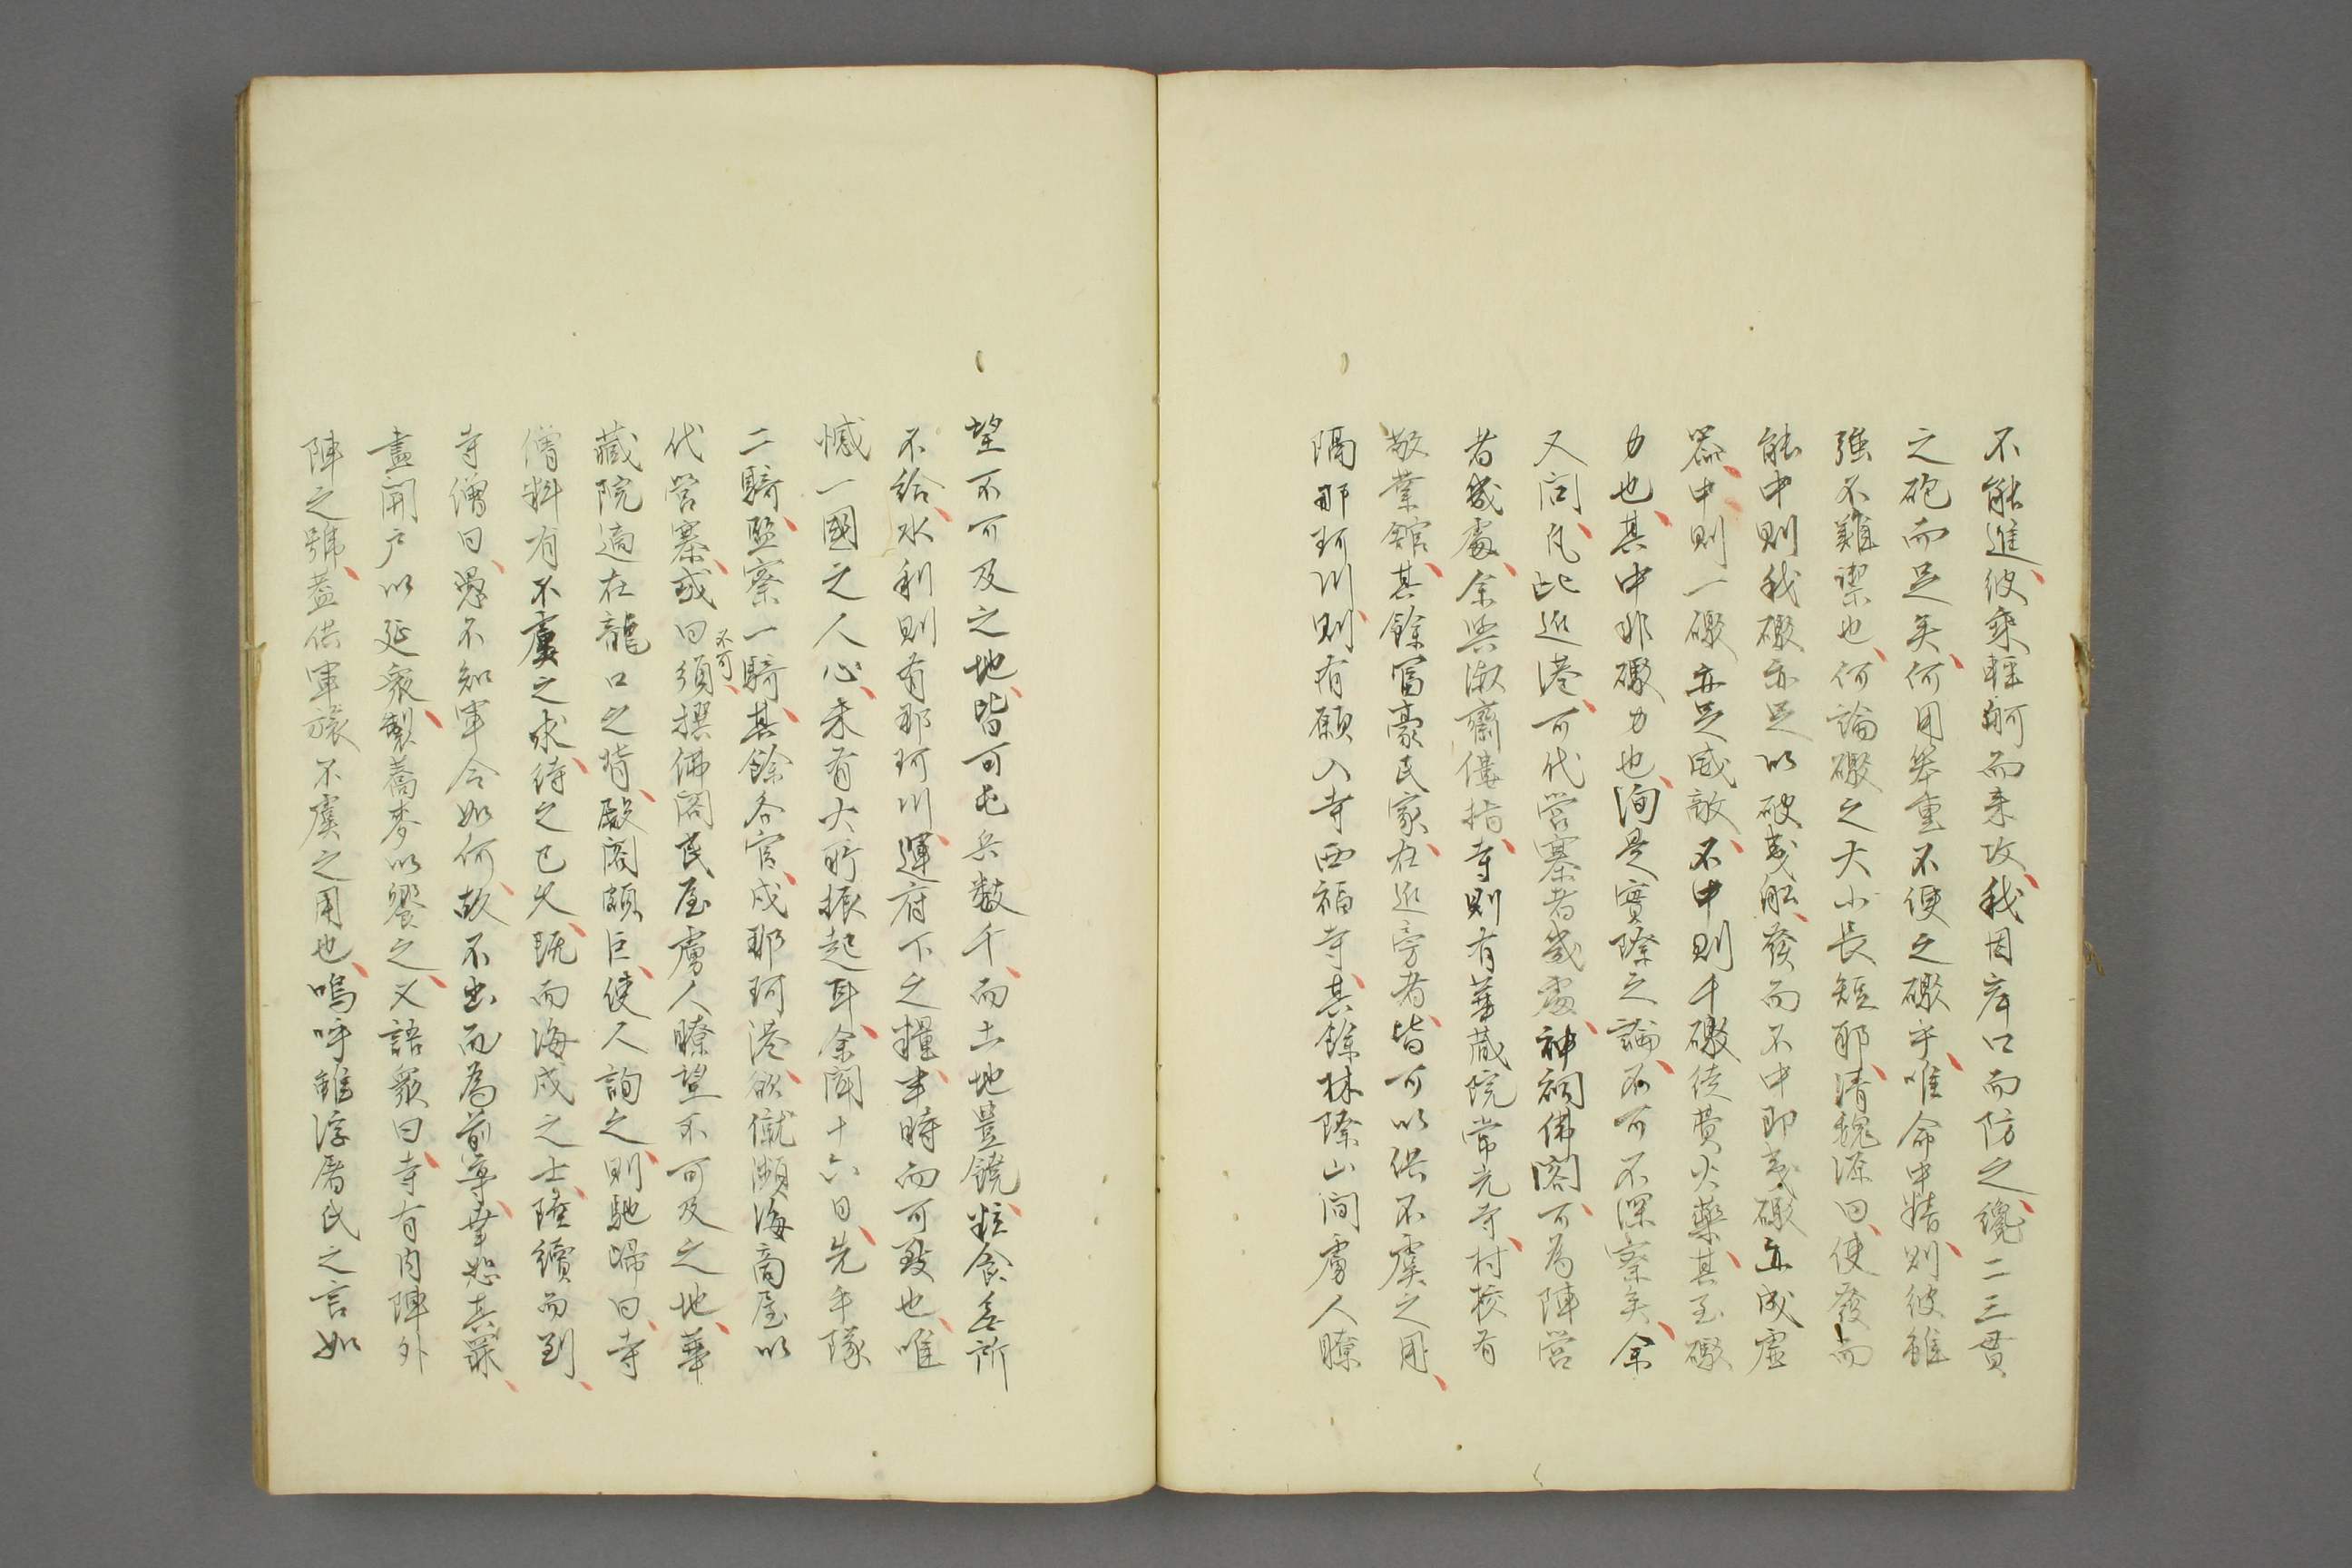 不能進、彼乗軽舸而来攻、我因岸口而防之、纔二三貫
之砲而足矣、何用笨重不便之礮乎、唯命中精、則彼雖
強不難禦也、何論礮之大小長短耶、清魏源曰、使發而
能中則我礮亦足以破夷船、發而不中即夷礮亦成虚
器、中則一礮亦足威敵、不中則千礮徒費火薬、其至礮
力也、其中非礮力也、洵是實際之論、不可不深察矣、余
又問、凡此近港、可代營寨者幾處、神祠佛閣、可為陣営
者幾處、余與淑齋僂指、寺則有華蔵院常光寺、村校有
敬業館、其餘冨豪民家、在近旁者、皆可以供不虞之用、
隔那珂川則、有願入寺西福寺、其餘林際山間虜人瞭
望不可及之地、皆可屯兵数千、而土地豊饒、粒食無所
不給、水利則有那珂川、運府下之糧、半時而可致也、唯
憾一國之人心、未有大所振起耳、余聞十六日、先手隊
二騎、監察一騎、其餘各官、戍那珂港、欲僦瀕海商屋以
代營寨、或曰不可、須撰佛閣民屋虜人瞭望不可及之地、華
藏院適在龍口之背、殿閣頗巨、使人詢之、則馳帰曰、寺
僧料有不虞之求、待之已久、既而海戍之士、陸續而到、
寺僧曰、愚不知軍令如何、故不出而為前導、幸恕其罪、
盡開戸以延衆、製蕎麥以饗之、又語衆曰、寺有内陣外
陣之號、蓋供軍旅不虞之用也、嗚呼雖浮屠氏之言如